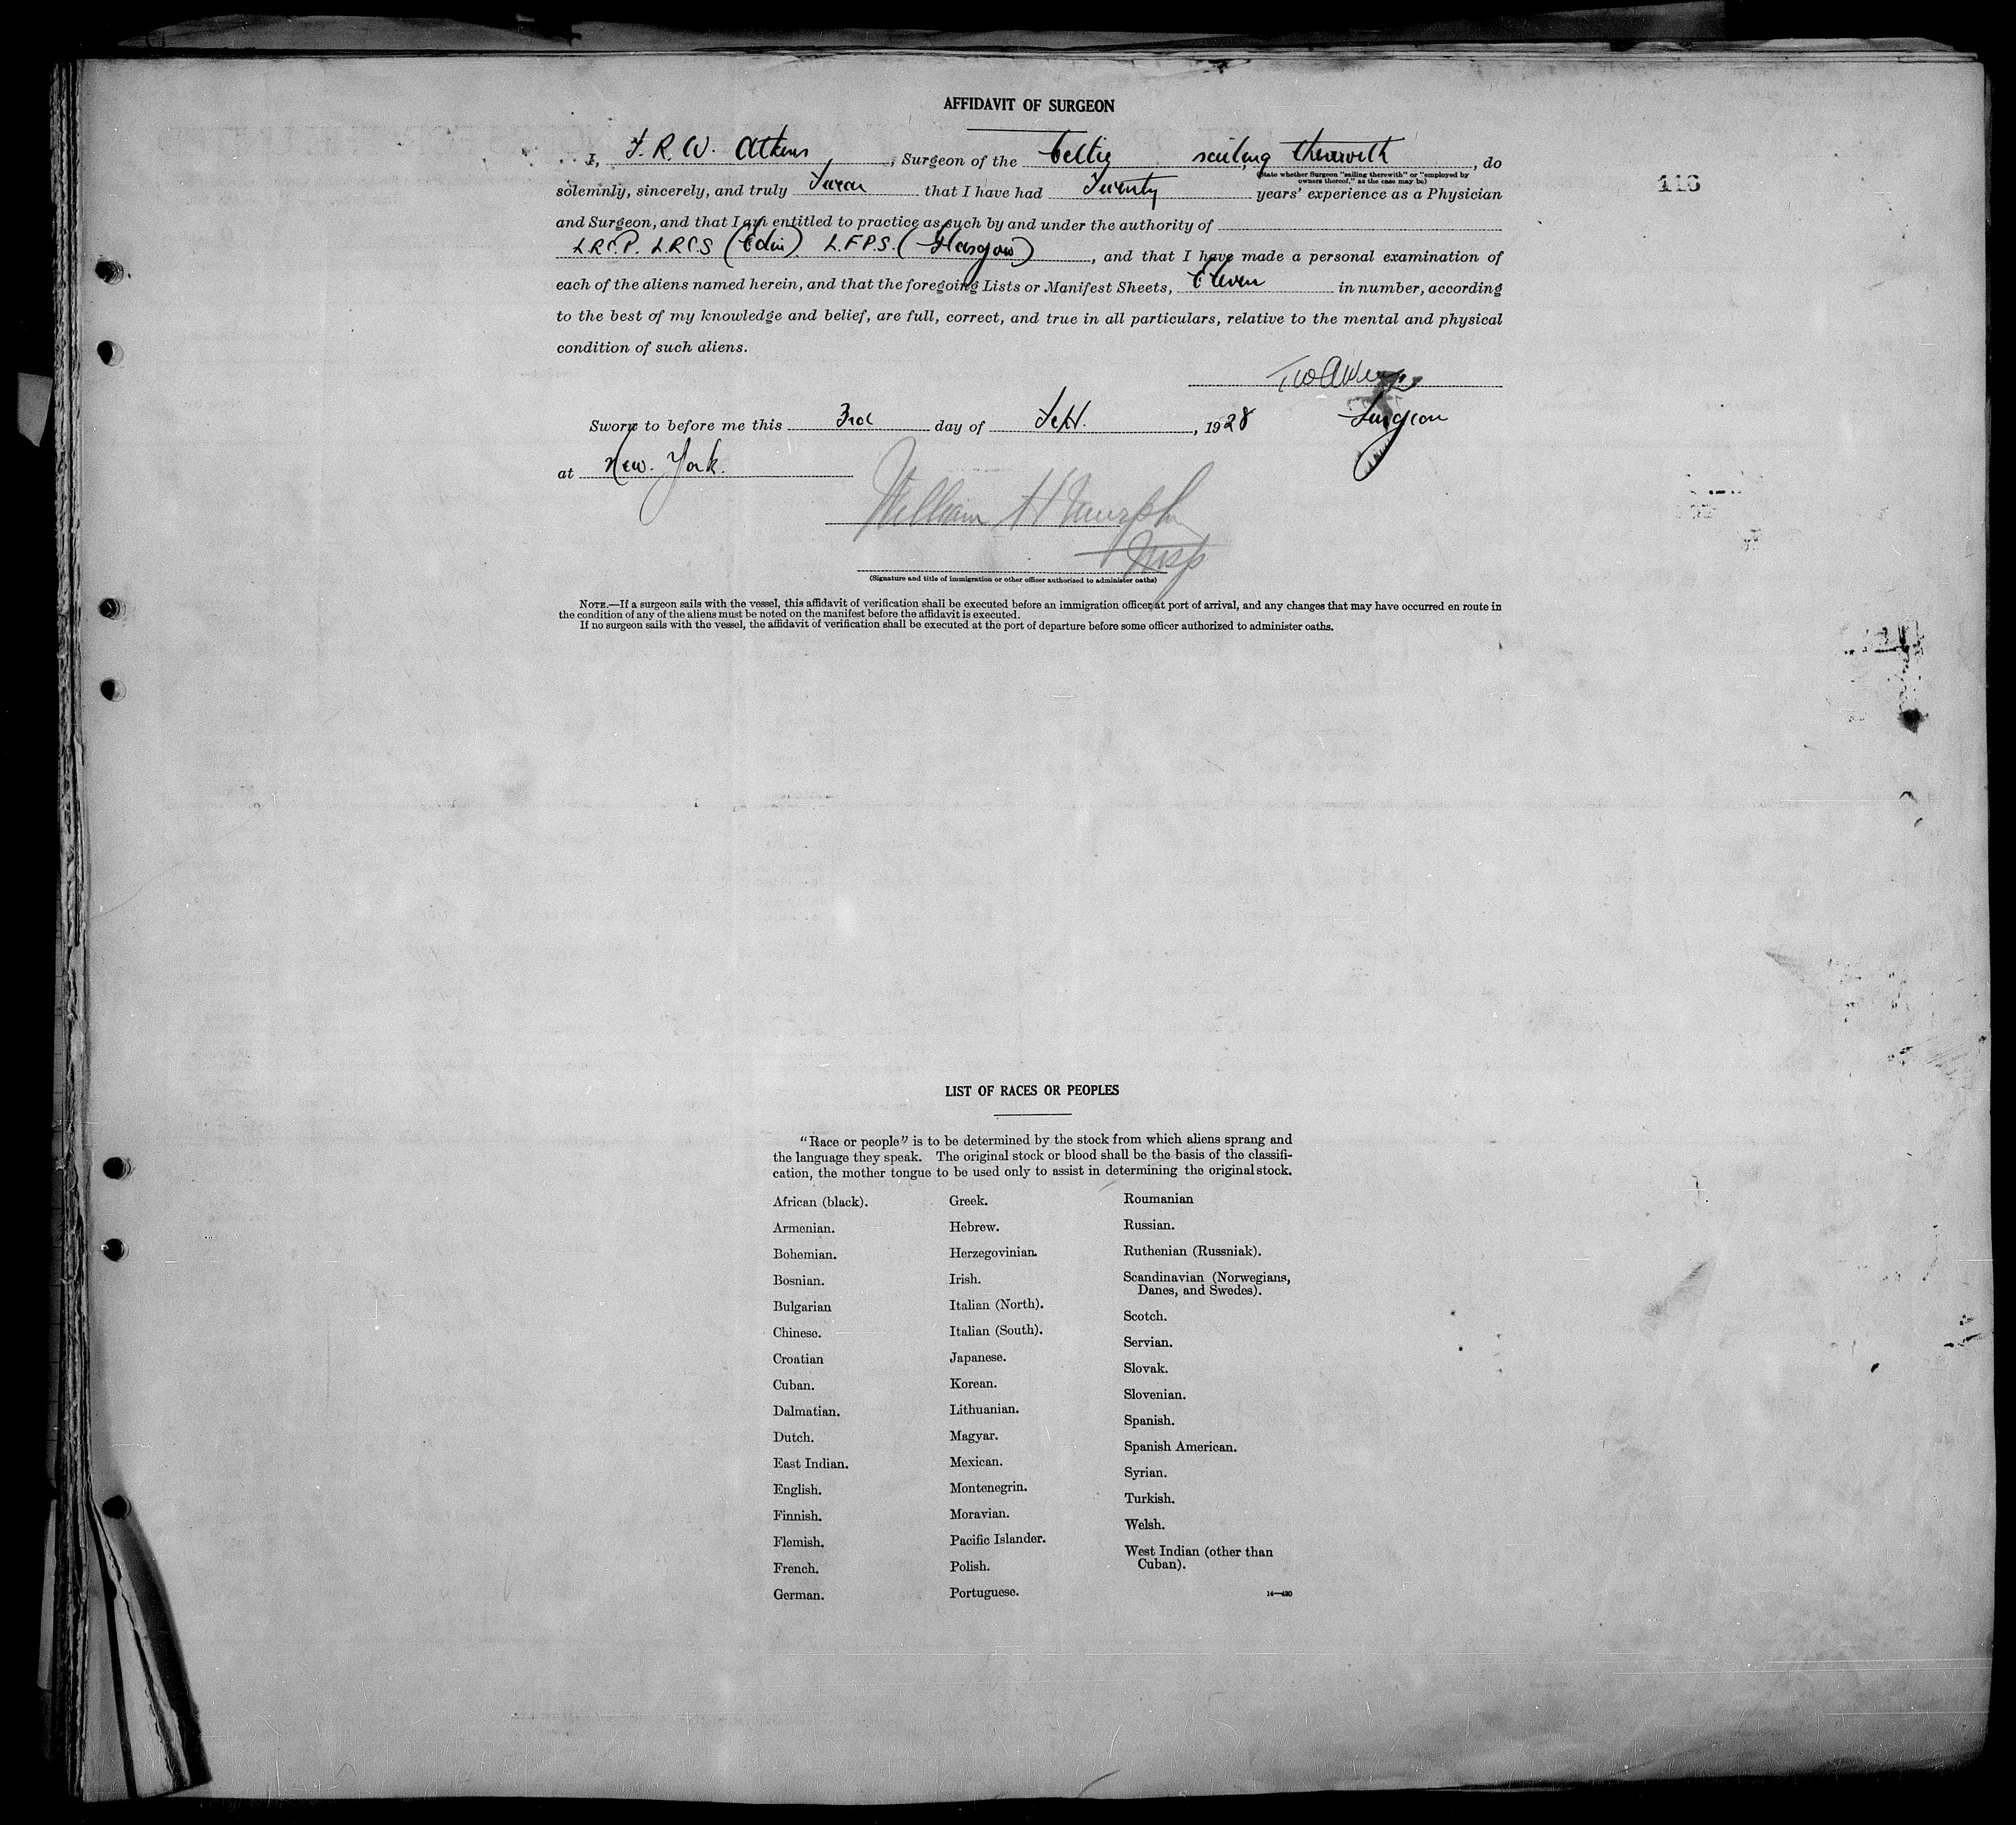 AFFIDAVIT OF SURGEON
I, F. R. W. Atkins, Surgeon of the Celtic sailing therewith, do
(State whether Surgeon "sailing therewith" or "employed by
owners thereof," as the case may be)
116
solemnly, sincerely, and truly Swear that I have had Twenty years' experience as a Physician
and Surgeon, and that I am entitled to practice as such by and under the authority of
L.R.C.P. L.R.C.S (Edin). L.F.P.S. (Glasgow), and that I have made a personal examination of
each of the aliens named herein, and that the foregoing Lists or Manifest Sheets, Eleven in number, according
to the best of my knowledge and belief, are full, correct, and true in all particulars, relative to the mental and physical
condition of such aliens.
Sworn to before me this 3rd day of Sept., 1928
Surgeon
at New. York.
William H Murphy
Insp
(Signature and title of immigration or other officer authorized to administer oaths)
NOTE.—If a surgeon sails with the vessel, this affidavit of verification shall be executed before an immigration officer at port of arrival, and any changes that may have occurred en route in
the condition of any of the aliens must be noted on the manifest before the affidavit is executed.
If no surgeon sails with the vessel, the affidavit of verification shall be executed at the port of departure before some officer authorized to administer oaths.
LIST OF RACES OR PEOPLES
"Race or people" is to be determined by the stock from which aliens sprang and
the language they speak. The original stock or blood shall be the basis of the classifi-
cation, the mother tongue to be used only to assist in determining the original stock.
African (black).
Armenian.
Bohemian.
Bosnian.
Bulgarian
Chinese.
Croatian
Cuban.
Dalmatian.
Dutch.
East Indian.
English.
Finnish.
Flemish.
French.
German.
Greek.
Hebrew.
Herzegovinian.
Irish.
Italian (North).
Italian (South).
Japanese.
Korean.
Lithuanian.
Magyar.
Mexican.
Montenegrin.
Moravian.
Pacific Islander.
Polish.
Portuguese.
Roumanian
Russian.
Ruthenian (Russniak).
Scandinavian (Norwegians,
Danes, and Swedes).
Scotch.
Servian.
Slovak.
Slovenian.
Spanish.
Spanish American.
Syrian.
Turkish.
Welsh.
West Indian (other than
Cuban).
14—430